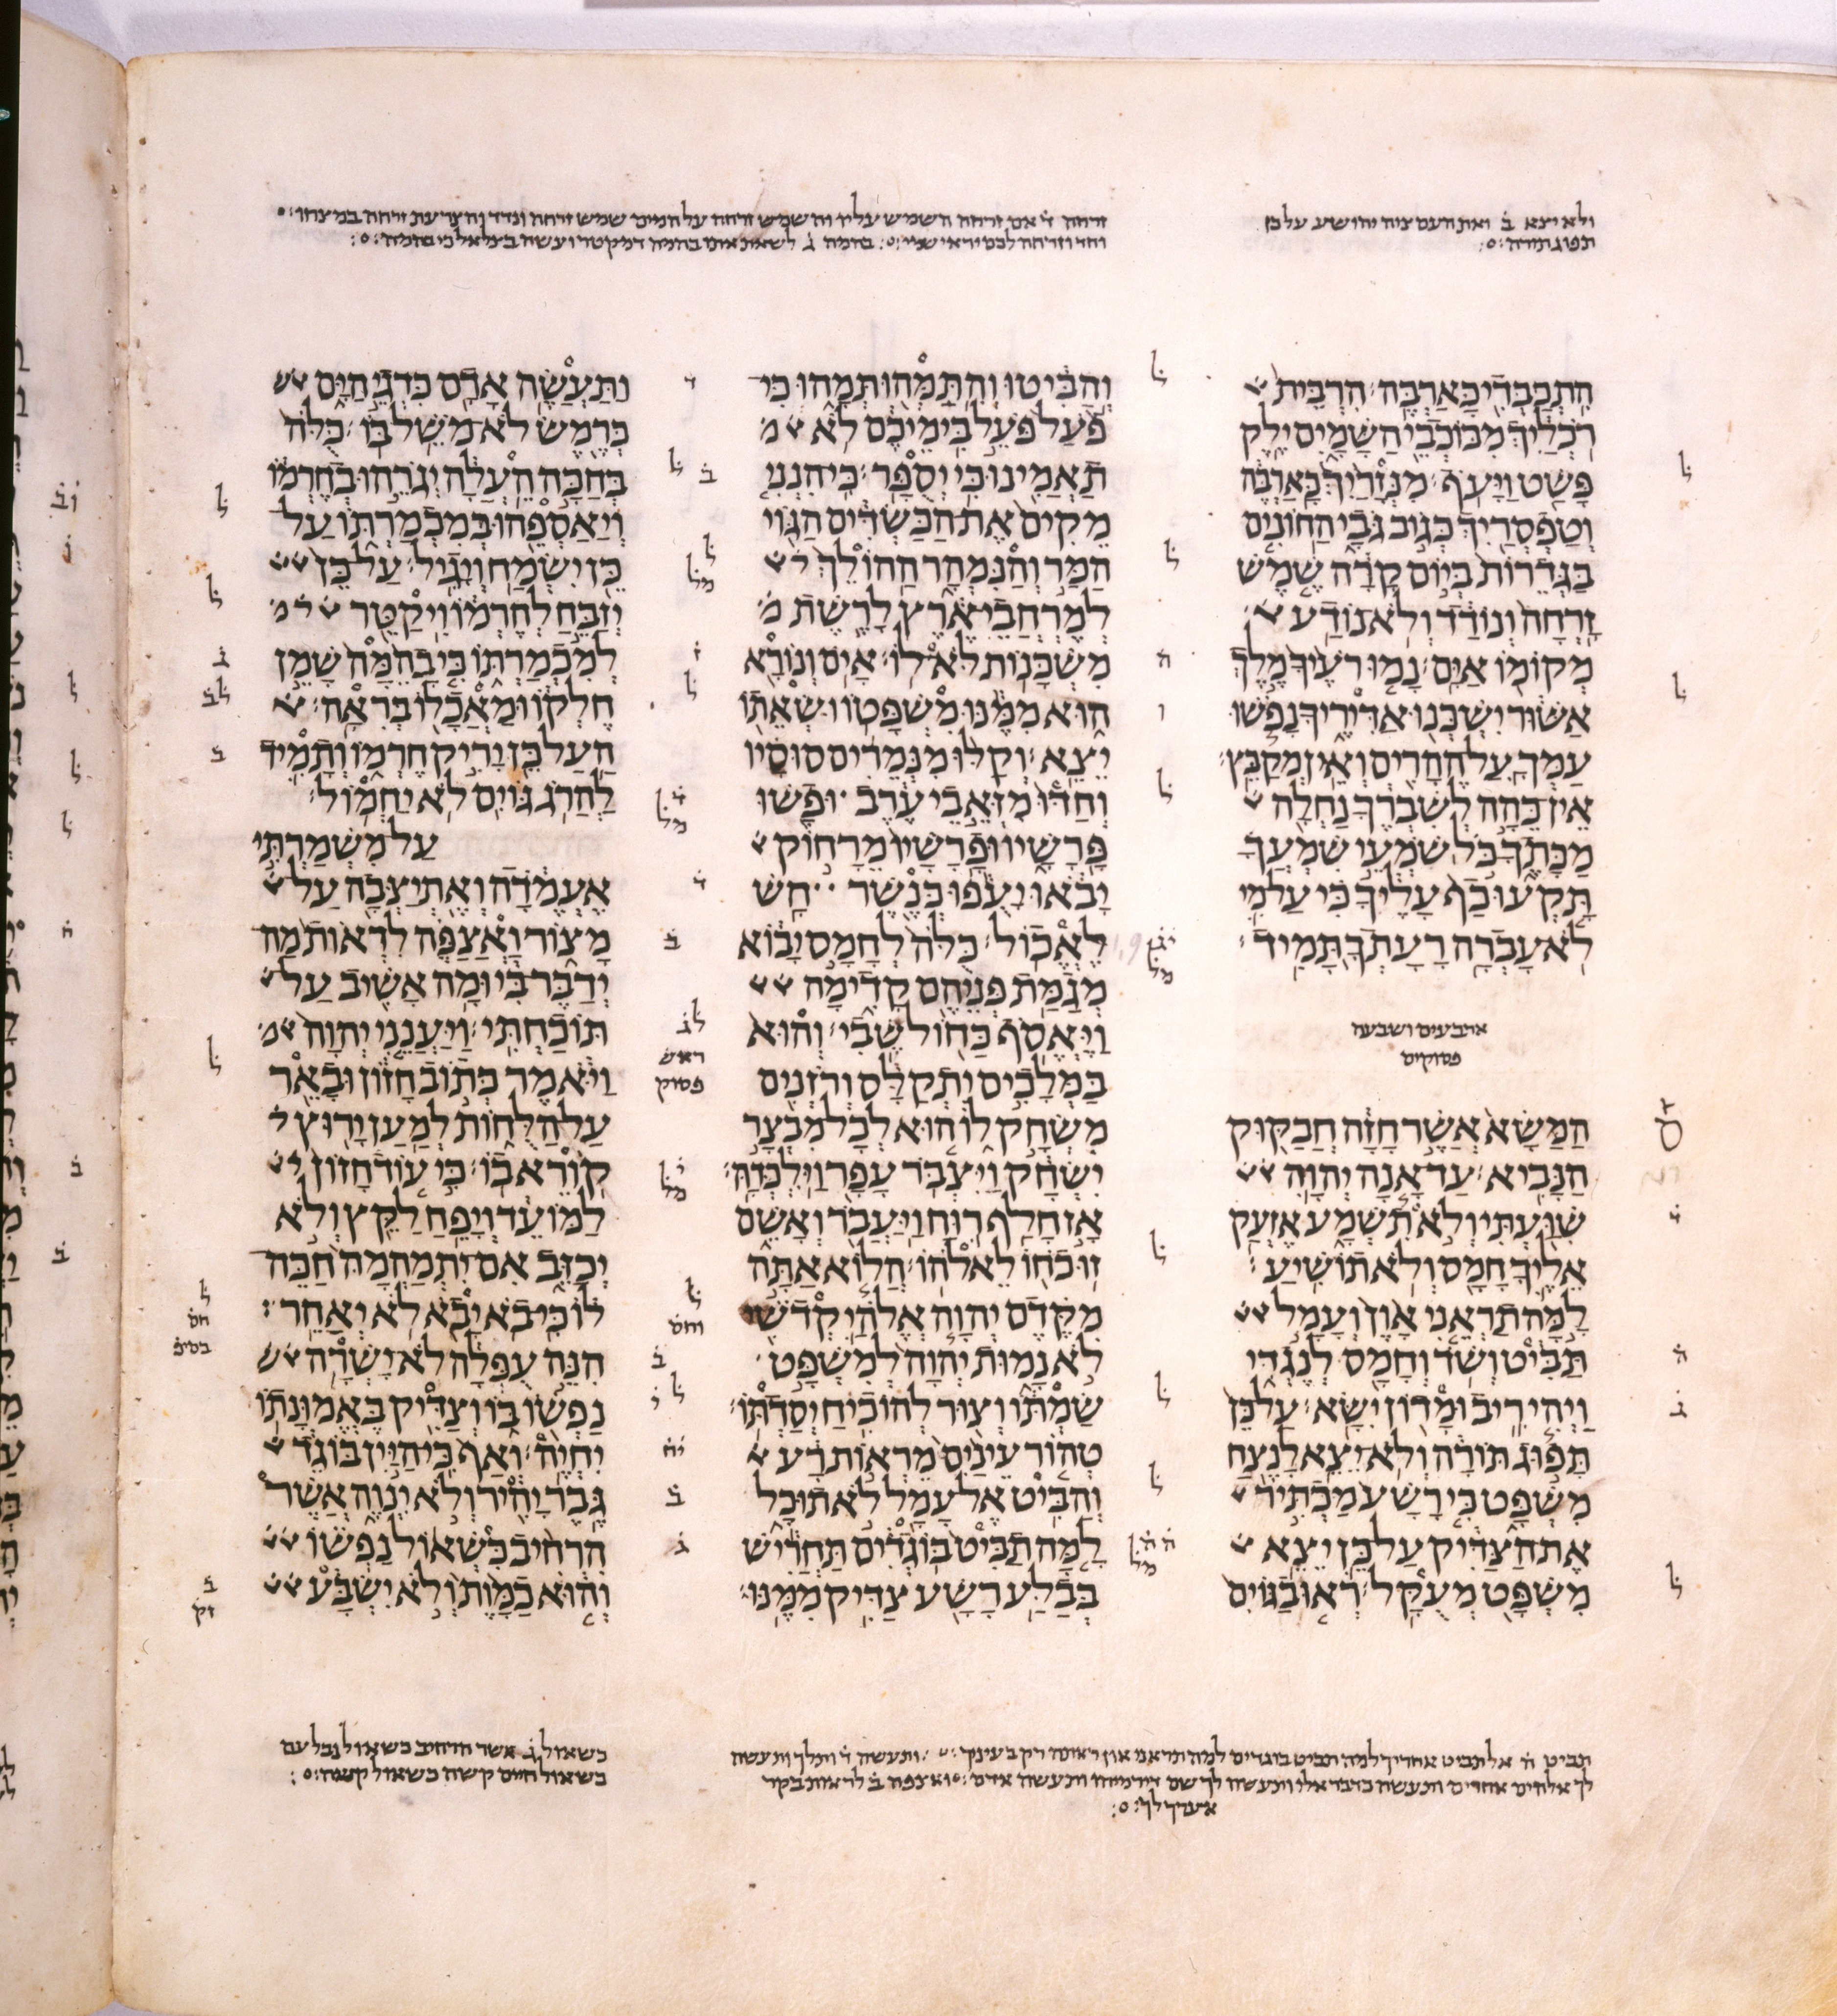 ולא יצא ב ואת העם ציוה יהושע על כן
תפוג תורה
זרחה ד אם זרחה השמש עליו והשמש זרחה על המים שמש זרחה ונודד והצרעת זרחה במצחו
וחד וזרחה לכם יראי שמי בהמה ג לשאת אתם בהמה
התכבדי כארבה הרבית
רכליך מכוכבי השמים ילק
פשט ויעף מנזריך כארבה
וטפסריך כגוב גבי החונים
בגדרות ביום קרה שמש
זרחה ונודד ולא נודע
מקומו אים נמו רעיך מלך
אשור ישכנו אדיריך נפשו
עמך על ההרים ואין מקבץ
אין כהה לשברך נחלה
מכתך כל שמעי שמעך
תקעו כף עליך כי על מי
לא עברה רעתך תמיד
ארבעים ושבעה
פסוקים
המשא אשר חזה חבקוק
הנביא עד אנה יהוה
שועתי ולא תשמע אזעק
אליך חמס ולא תושיע
למה תראני און ועמל
תביט ושד וחמס לנגדי
ויהי ריב ומדון ישא על כן
תפוג תורה ולא יצא לנצח
משפט כי רשע מכתיר
את הצדיק על כן יצא
משפט מעקל ראו בגוים
והביטו והתמהו תמהו כי
פעל פעל בימיכם לא
תאמינו כי יספר כי הנני
מקים את הכשדים הגוי
המר והנמהר ההולך
למרחבי ארץ לרשת
משכנות לא לו אים ונורא
הוא ממנו משפטו ושאתו
יצא וקלו מנמרים סוסיו
וחדו מזאבי ערב ופשו
פרשיו ופרשיו מרחוק
יבאו יעפו כנשר חש
לאכול כלה לחמס יבוא
מגמת פניהם קדימה
ויאסף כחול שבי והוא
במלכים יתקלס ורזנים
משחק לו הוא לכל מבצר
ישחק ויצבר עפר וילכדה
אז חלף רוח ויעבר ואשם
זו כחו לאלהו הלוא אתה
מקדם יהוה אלהי קדשי
לא נמות יהוה למשפט
שמתו וצור להוכיח יסדתו
טהור עינים מראות רע
והביט אל עמל לא תוכל
למה תביט בוגדים תחריש
בבלע רשע צדיק ממנו
ותעשה אדם כדגי הים
כרמש לא משל בו כלה
בחכה העלה יגרהו בחרמו
ויאספהו במכמרתו על
כן ישמח ויגיל על כן
יזבח לחרמו ויקטר
למכמרתו כי בהמה שמן
חלקו ומאכלו בראה
העל כן יריק חרמו ותמיד
להרג גוים לא יחמול
על משמרתי
אעמדה ואתיצבה על
מצור ואצפה לראות מה
ידבר בי ומה אשיב על
תוכחתי ויענני יהוה
ויאמר כתוב חזון ובאר
על הלחות למען ירוץ
קורא בו כי עוד חזון
למועד ויפח לקץ ולא
יכזב אם יתמהמה חכה
לו כי בא יבא לא יאחר
הנה עפלה לא ישרה
נפשו בו וצדיק באמונתו
יחיה ואף כי היין בוגד
גבר יהיר ולא ינוה אשר
הרחיב כשאול נפשו
והוא כמות ולא ישבע
תביט ה אל תביט אחריך למה תביט בוגדים למה תראני און ותעשה ד ותלך ותעשה
לך אלהים אחרים ותעשה לך שם ותעשה אדם ואצפה ב לראות בקר
אערך לך
כשאול ג אשר הרחיב כשאול נבלעם
כשאול חיים קשה כשאול קנאה